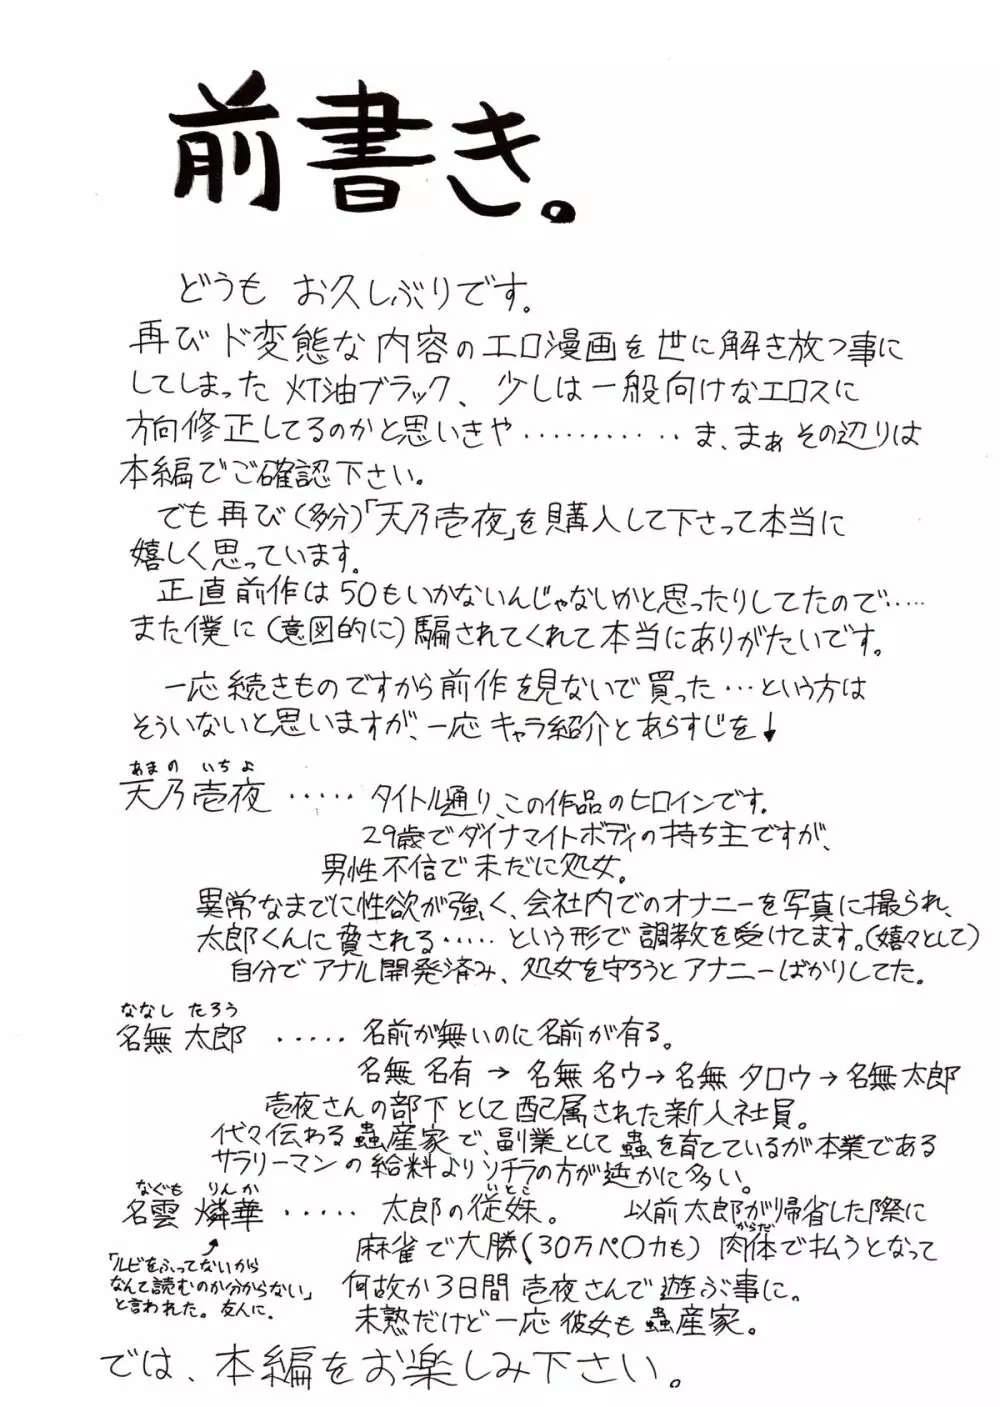 前書き。
どうも お久しぶりです。
再びド変態な内容のエロ漫画を世に解き放つ事に
してしまった 灯油ブラック、少しは一般向けなエロスに
方向修正してるのかと思いきや・・・・・・・・・・・・ま、まぁその辺りは
本編でご確認下さい。
でも再び(多分)「天乃壱夜」を購入して下さって本当に
嬉しく思っています。
正直前作は50もいかないんじゃないかと思ったりしてたので・・・・・
また僕に(意図的に)騙されてくれて本当にありがたいです。
一応続きものですから前作を見ないで買った・・・という方は
そういないと思いますが、一応キャラ紹介とあらすじを↓
あまの いちよ
天乃壱夜 ・・・・・ タイトル通り、この作品のヒロインです。
29歳でダイナマイトボディの持ち主ですが、
男性不信で未だに処女。
異常なまでに性欲が強く、会社内でのオナニーを写真に撮られ、
太郎くんに脅される・・・・・という形で調教を受けてます。(嬉々として)
自分でアナル開発済み、処女を守ろうとアナニーばかりしてた。
ななし たろう
名無 太郎 ・・・・・ 名前が無いのに名前が有る。
名無 名有 → 名無 名ウ→名無 タロウ→名無太郎
壱夜さんの部下として配属された新入社員。
代々伝わる蟲産家で、副業として蟲を育てているが本業である
サラリーマンの給料よりソチラの方が遥かに多い。
なぐも りんか
名雲 燐華 ・・・・・ 太郎の従妹。 以前太郎が帰省した際に
いとこ
麻雀で大勝(30万ペ〇カも) 肉体で払うとなって
からだ
何故か3日間壱夜さんで遊ぶ事に。
未熟だけど一応彼女も蟲産家。
「ルビをふってないから
なんて読むのか分からない」
と言われた。友人に。
では、本編をお楽しみ下さい。